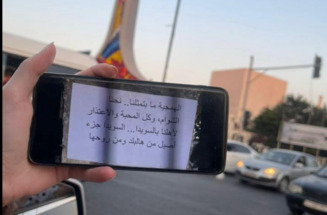 الهمجية ما بتمثلنا.. نحنا
الشوام، وكل المحبة والأعتذار
لأهلنا بالسويدا... السويدا جزء
أصيل من هالبلد ومن روحها